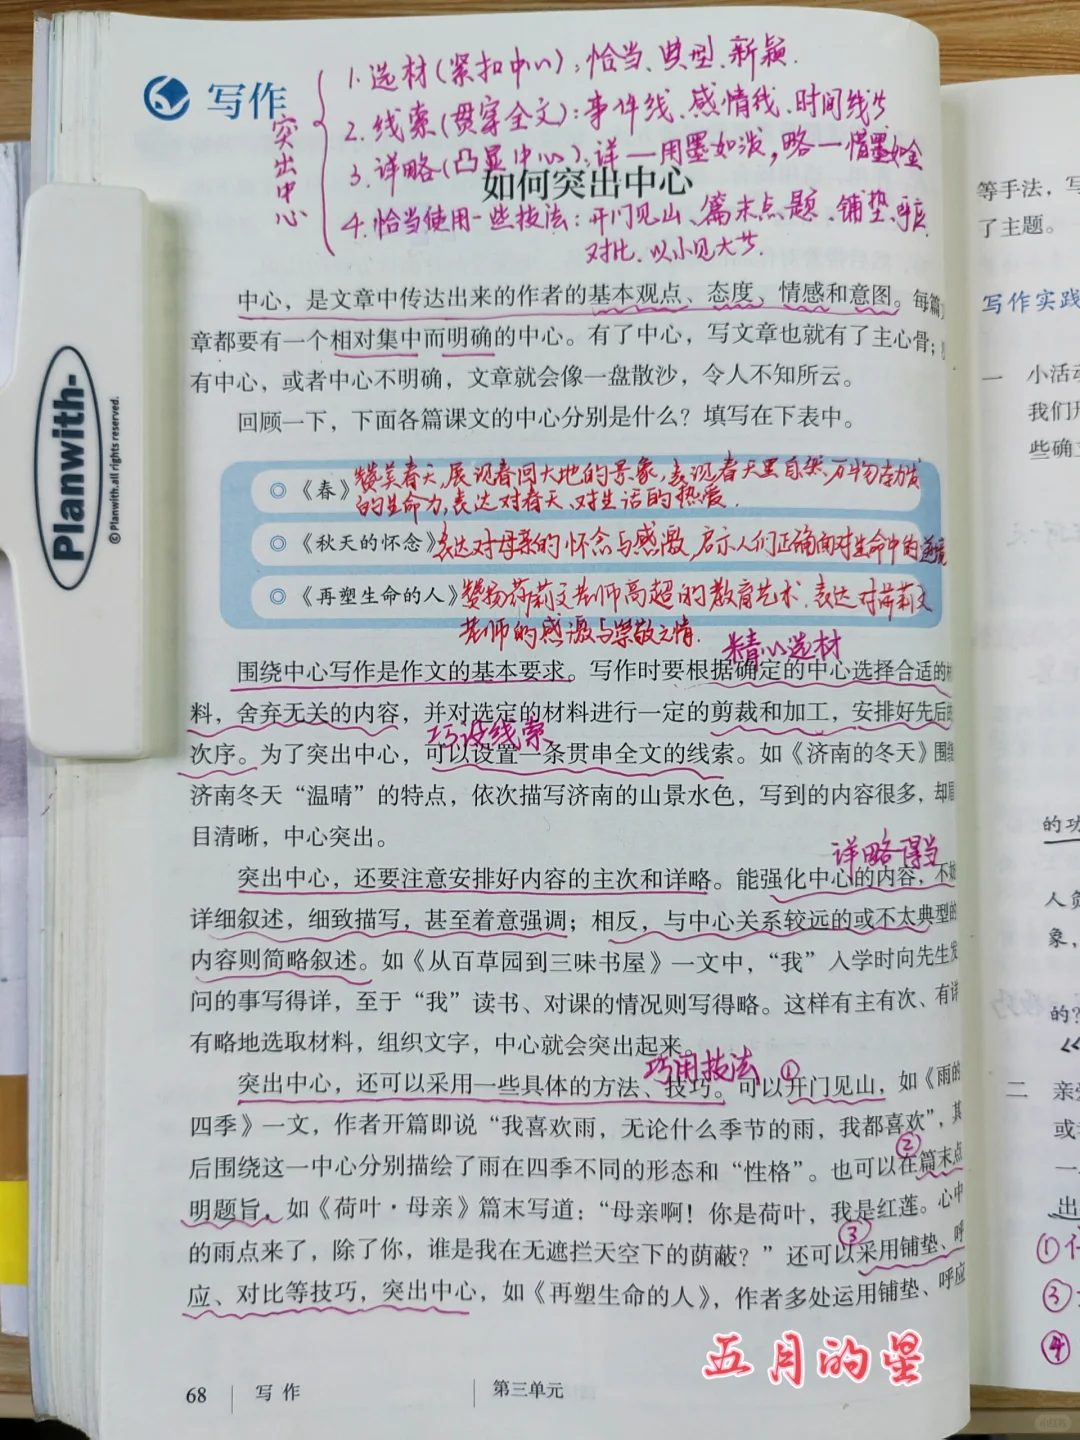 写作
突出中心
1.选材(紧扣中心):恰当、典型、新颖.
2.线索(贯穿全文):事件线、感情线、时间线
3.详略(凸显中心):详—用墨如泼,略—惜墨如金
如何突出中心
4.恰当使用一些技法:开门见山、篇末点题、铺垫、呼应.
对比、以小见大
中心，是文章中传达出来的作者的基本观点、态度、情感和意图。每篇
章都要有一个相对集中而明确的中心。有了中心，写文章也就有了主心骨；
有中心，或者中心不明确，文章就会像一盘散沙，令人不知所云。
回顾一下，下面各篇课文的中心分别是什么？填写在下表中。
◎《春》赞美春天,展现春回大地的景象,表现春天里自然、万物
的生命力,表达对春天、对生活的热爱.
◎《秋天的怀念》表达对母亲的怀念与感激,启示人们正确面对生命中的逆境
◎《再塑生命的人》赞扬莎莉文老师高超的教育艺术.表达对莎莉文
老师的感激与崇敬之情.
精心选材
围绕中心写作是作文的基本要求。写作时要根据确定的中心选择合适的材
料，舍弃无关的内容，并对选定的材料进行一定的剪裁和加工，安排好先后的
巧设线索
次序。为了突出中心，可以设置一条贯串全文的线索。如《济南的冬天》围绕
济南冬天“温晴”的特点，依次描写济南的山景水色，写到的内容很多，却眉
目清晰，中心突出。
详略得当
突出中心，还要注意安排好内容的主次和详略。能强化中心的内容，不妨
详细叙述，细致描写，甚至着意强调；相反，与中心关系较远的或不太典型的
内容则简略叙述。如《从百草园到三味书屋》一文中，“我”入学时向先生发
问的事写得详，至于“我”读书、对课的情况则写得略。这样有主有次、有详
有略地选取材料，组织文字，中心就会突出起来。
巧用技法 ①
突出中心，还可以采用一些具体的方法、技巧。可以开门见山，如《雨的
四季》一文，作者开篇即说“我喜欢雨，无论什么季节的雨，我都喜欢”，其
②
后围绕这一中心分别描绘了雨在四季不同的形态和“性格”。也可以在篇末点
明题旨，如《荷叶·母亲》篇末写道：“母亲啊！你是荷叶，我是红莲。心中
③
的雨点来了，除了你，谁是我在无遮拦天空下的荫蔽？”还可以采用铺垫、呼
应、对比等技巧，突出中心，如《再塑生命的人》，作者多处运用铺垫、呼应
五月的星
68 写作 第三单元
Planwith-
© Planwith.all rights reserved.
等手法，写
了主题。
写作实践
一 小活动
我们
些确立
的功
人员
象，
的？
《
二 亲
或
一
出
①
③
④
小红书